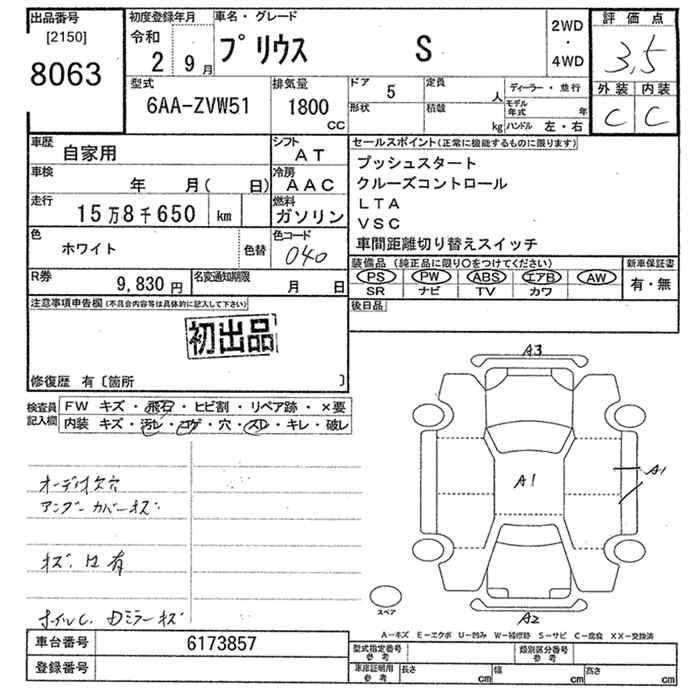 出品番号 初度登録年月 車名・グレード 評価点
[2150] 令和 プリウス S 2WD ・ 4WD 3.5
8063 2年 9月
外装 内装
C C
型式 排気量 ドア 5 定員 人 ディーラー・並行
6AA-ZVW51 1800 CC 形状 積載 kg モデル年式 年
ハンドル 左・右
車歴 自家用 シフト AT セールスポイント(正常に機能するものに限ります)
車検 年 月( 日) 冷房 AAC プッシュスタート
クルーズコントロール
走行 15万8千650 km 燃料 ガソリン LTA
VSC
色 ホワイト 色替 色コード 040 車間距離切り替えスイッチ
装備品(純正品に限り○をつけてください) 新車保証書
R券 9,830円 名変通知期限 月 日 PS PW ABS エアB AW 有・無
SR ナビ TV カワ
注意事項申告欄(不具合内容等は具体的に記入して下さい) 後日品
初出品
修復歴 有〔箇所 〕
検査員記入欄 FW キズ・飛石・ヒビ割・リペア跡・×要
内装 キズ・汚レ・コゲ・穴・スレ・キレ・破レ
A3
A1 A1
オーデイオ欠品
アンダーカバーキズ
キズ・凹有
ホイルC. Dミラーキズ
スペア
A2
A-キズ E-エクボ U-凹み W-補修跡 S-サビ C-腐食 XX-交換済
車台番号 6173857 型式指定番号 参考 類別区分番号 参考
登録番号 車庫証明用 参考 長さ cm 幅 cm 高さ cm